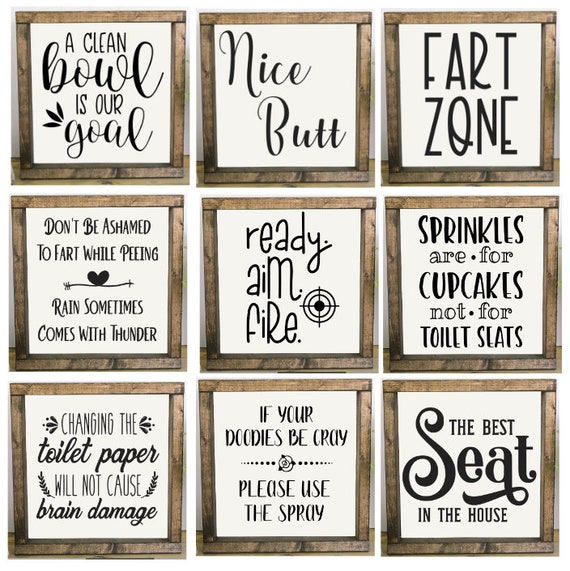 A CLEAN
bowl
IS OUR
goal
Nice
Butt
FART
ZONE
DON'T BE ASHAMED
TO FART WHILE PEEING
RAIN SOMETIMES
COMES WITH THUNDER
ready.
aim.
fire.
SPRINKLES
are · for
CUPCAKES
not · for
TOILET SEATS
CHANGING THE
toilet paper
WILL NOT CAUSE
brain damage
IF YOUR
DOODIES BE CRAY
PLEASE USE
THE SPRAY
THE BEST
Seat
IN THE HOUSE